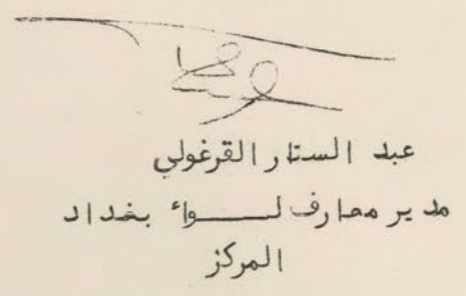 عبد الستار القرغولي
مدير معارف لـــــواء بغداد
المركز